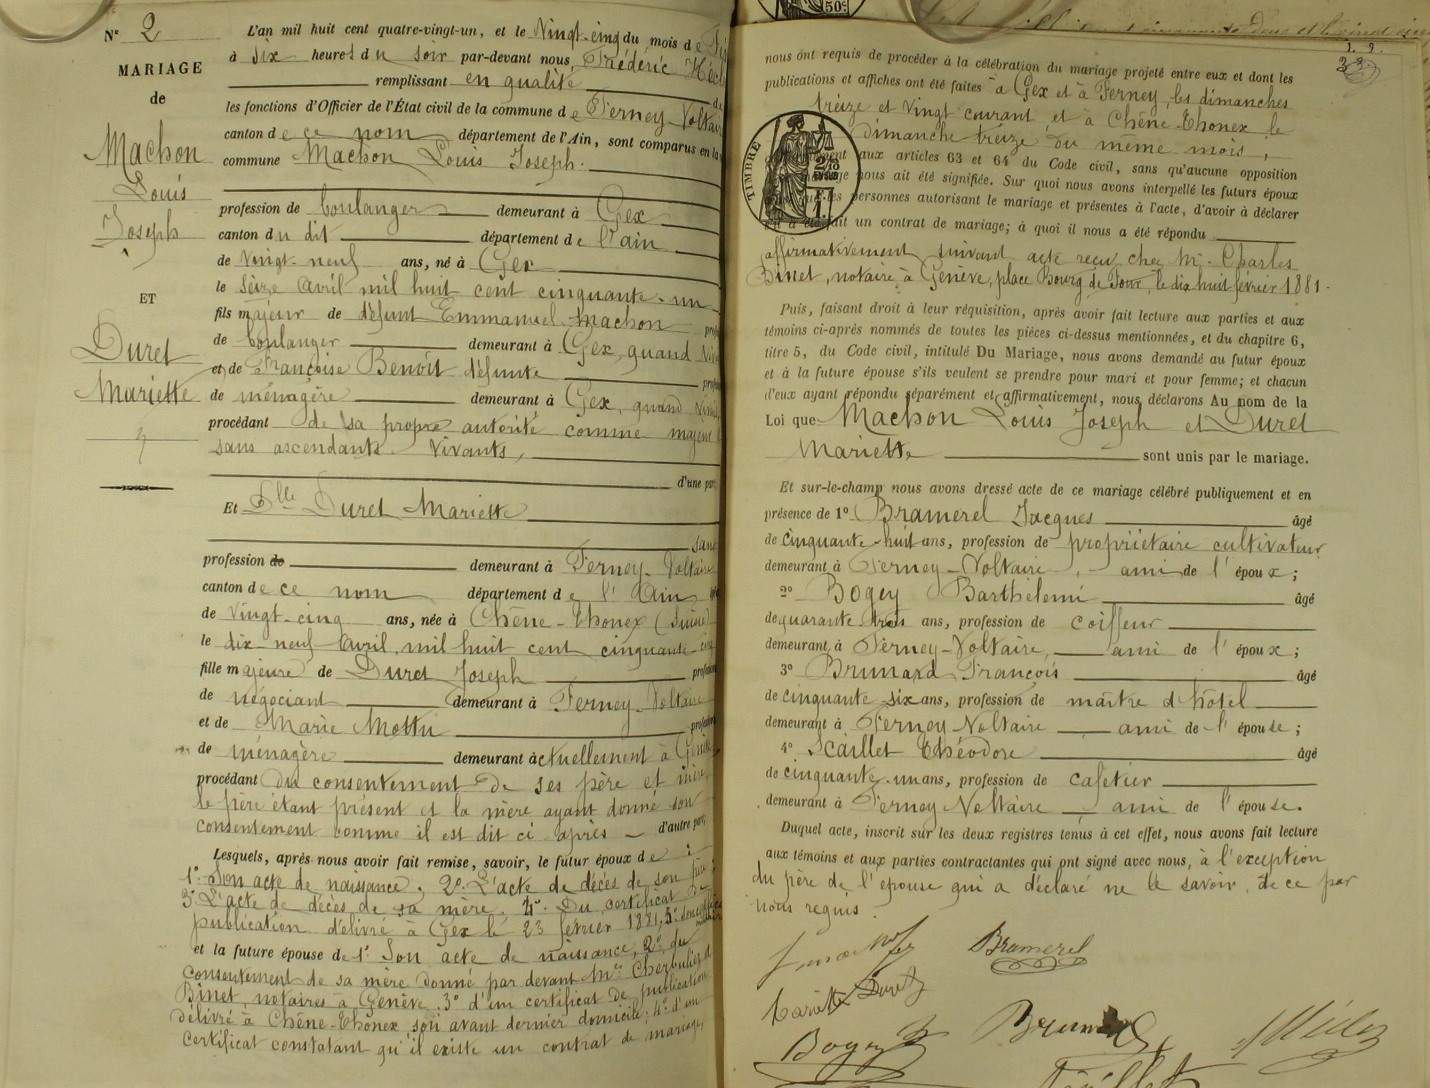 N° 2
MARIAGE
de
Machon
Louis
Joseph
ET
Duret
Mariette
L'an mil huit cent quatre-vingt-un, et le Vingt-cinq du mois de
à six heures du soir par-devant nous, Frédéric
remplissant en qualité de
les fonctions d'Officier de l'État civil de la commune de Ferney-Voltaire
canton de ce nom département de l'Ain, sont comparus en la
commune Machon Louis Joseph.
profession de boulanger demeurant à Gex
canton du dit département de l'Ain
de vingt-neuf ans, né à Gex
le seize avril mil huit cent cinquante-un
fils majeur de défunt Emmanuel Machon
de boulanger demeurant à Gex, quand
et de Françoise Benoit défunte
de ménagère demeurant à Gex, quand
procédant de sa propre autorité comme majeur
sans ascendants vivants,
d'une part
Et Dlle Duret Mariette
sans
profession de demeurant à Ferney-Voltaire
canton de ce nom département de l'Ain
de vingt-cinq ans, née à Chêne-Thonex (Suisse)
le dix-neuf avril mil huit cent cinquante-
fille majeure de Duret Joseph
de négociant demeurant à Ferney-Voltaire
et de Marie Mottu
de ménagère demeurant actuellement à Genève
procédant du consentement de ses père et mère
le père étant présent et la mère ayant donné son
consentement comme il est dit ci après d'autre part,
Lesquels, après nous avoir fait remise, savoir, le futur époux de :
1° Son acte de naissance, 2° L'acte de décès de son père
3° L'acte de décès de sa mère. 4° Du certificat de
publication délivré à Gex le 23 février 1881,
et la future épouse de 1° Son acte de naissance, 2° du
consentement de sa mère donné par devant Mes Cherbuliez &
Binet, notaires à Genève. 3° d'un certificat de publication
délivré à Chêne-Thônex, son avant dernier domicile; 4° d'un
certificat constatant qu'il existe un contrat de mariage,
50c
TIMBRE
nous ont requis de procéder à la célébration du mariage projeté entre eux et dont les
publications et affiches ont été faites à Gex et à Ferney, les dimanches
treize et vingt courant et à Chêne-Thonex le
dimanche treize du même mois,
aux articles 63 et 64 du Code civil, sans qu'aucune opposition
nous ait été signifiée. Sur quoi nous avons interpellé les futurs époux
personnes autorisant le mariage et présentes à l'acte, d'avoir à déclarer
fait un contrat de mariage; à quoi il nous a été répondu
affirmativement suivant acte reçu chez M. Charles
Binet, notaire à Genève, place Bourg de Four, le dix huit février 1881.
Puis, faisant droit à leur réquisition, après avoir fait lecture aux parties et aux
témoins ci-après nommés de toutes les pièces ci-dessus mentionnées, et du chapitre 6,
titre 5, du Code civil, intitulé Du Mariage, nous avons demandé au futur époux
et à la future épouse s'ils veulent se prendre pour mari et pour femme; et chacun
d'eux ayant répondu séparément et affirmativement, nous déclarons Au nom de la
Loi que Machon Louis Joseph et Duret
Mariette sont unis par le mariage.
Et sur-le-champ nous avons dressé acte de ce mariage célébré publiquement et en
présence de 1° Bramerel Jacques âgé
de cinquante-huit ans, profession de propriétaire cultivateur
demeurant à Ferney-Voltaire, ami de l'époux;
2° Bogey Barthélemi âgé
de quarante trois ans, profession de coiffeur
demeurant à Ferney-Voltaire, ami de l'époux;
3° Brunard François âgé
de cinquante six ans, profession de maître d'hôtel
demeurant à Ferney Voltaire ami de l'épouse;
4° Scaillet Théodore âgé
de cinquante-un ans, profession de cafetier
demeurant à Ferney Voltaire ami de l'épouse.
Duquel acte, inscrit sur les deux registres tenus à cet effet, nous avons fait lecture
aux témoins et aux parties contractantes qui ont signé avec nous, à l'exception
du père de l'épouse qui a déclaré ne le savoir, de ce par
nous requis.
Bramerel
Duret
Bogey